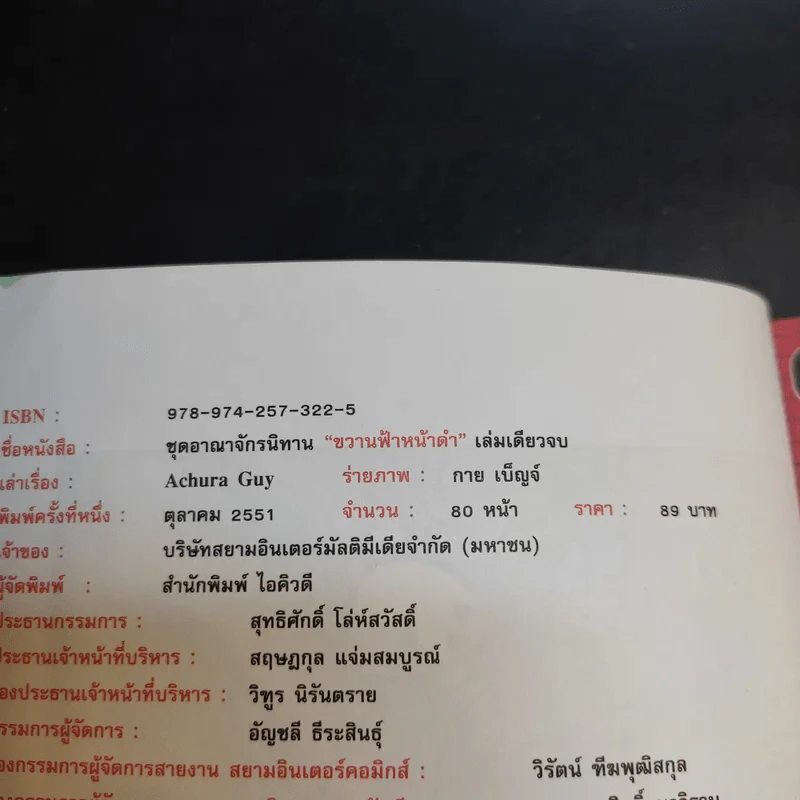 ISBN : 978-974-257-322-5
ชื่อหนังสือ : ชุดอาณาจักรนิทาน “ขวานฟ้าหน้าดำ” เล่มเดียวจบ
เล่าเรื่อง : Achura Guy ร่ายภาพ : กาย เบ็ญจ์
พิมพ์ครั้งที่หนึ่ง : ตุลาคม 2551 จำนวน : 80 หน้า ราคา : 89 บาท
เจ้าของ : บริษัทสยามอินเตอร์มัลติมีเดียจำกัด (มหาชน)
ผู้จัดพิมพ์ : สำนักพิมพ์ ไอคิวดี
ประธานกรรมการ : สุทธิศักดิ์ โล่ห์สวัสดิ์
ประธานเจ้าหน้าที่บริหาร : สฤษฎกุล แจ่มสมบูรณ์
องประธานเจ้าหน้าที่บริหาร : วิฑูร นิรันตราย
รรมการผู้จัดการ : อัญชลี ธีระสินธุ์
องกรรมการผู้จัดการสายงาน สยามอินเตอร์คอมิกส์ : วิรัตน์ ทีฆพุฒิสกุล